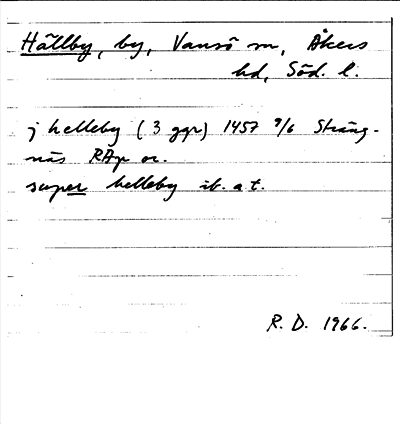 Hällby, by, Vansö sn, Åkers
hd, Söd. l.
j helleby (3 ggr) 1457 9/6 Sträng-
näs RAp or.
super helleby ib. a.t.
R. D. 1966.